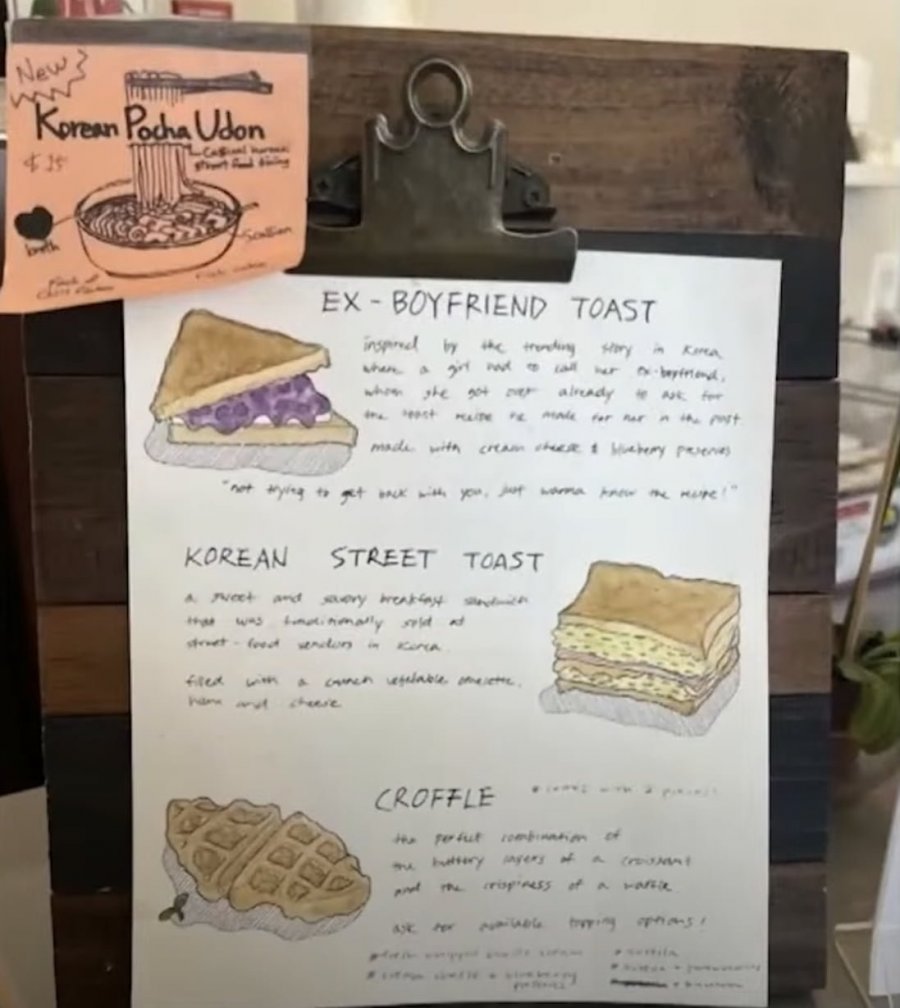 New
Korean Pocha Udon
Casual korean
street food dining
broth
Scallion
EX-BOYFRIEND TOAST
inspired by the trending story in Korea
where a girl had to call her ex-boyfriend,
whom she got over already to ask for
the toast recipe he made for her in the past
made with cream cheese & blueberry preserves
"not trying to get back with you, just wanna know the recipe!"
KOREAN STREET TOAST
a sweet and savory breakfast sandwich
that was traditionally sold at
street-food vendors in Korea.
filled with a vegetable omelette,
ham and cheese
CROFFLE
* comes with 2 pieces!
the perfect combination of
the buttery layers of a croissant
and the crispiness of a waffle
ask for available topping options!
* cream cheese + blueberry
preserves
* nutella